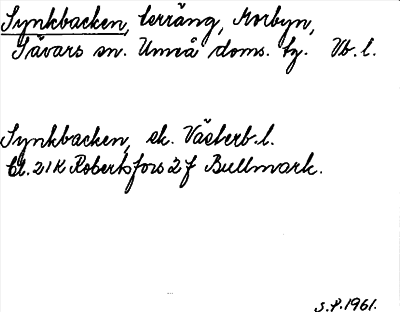 Synkbacken, terräng, Norbyn,
Sävars sn. Umeå doms. tg. Vb. l.
Synkbacken, ek. Västerb. l.
bl. 21K Robertsfors 2f Bullmark.
S.P. 1961.